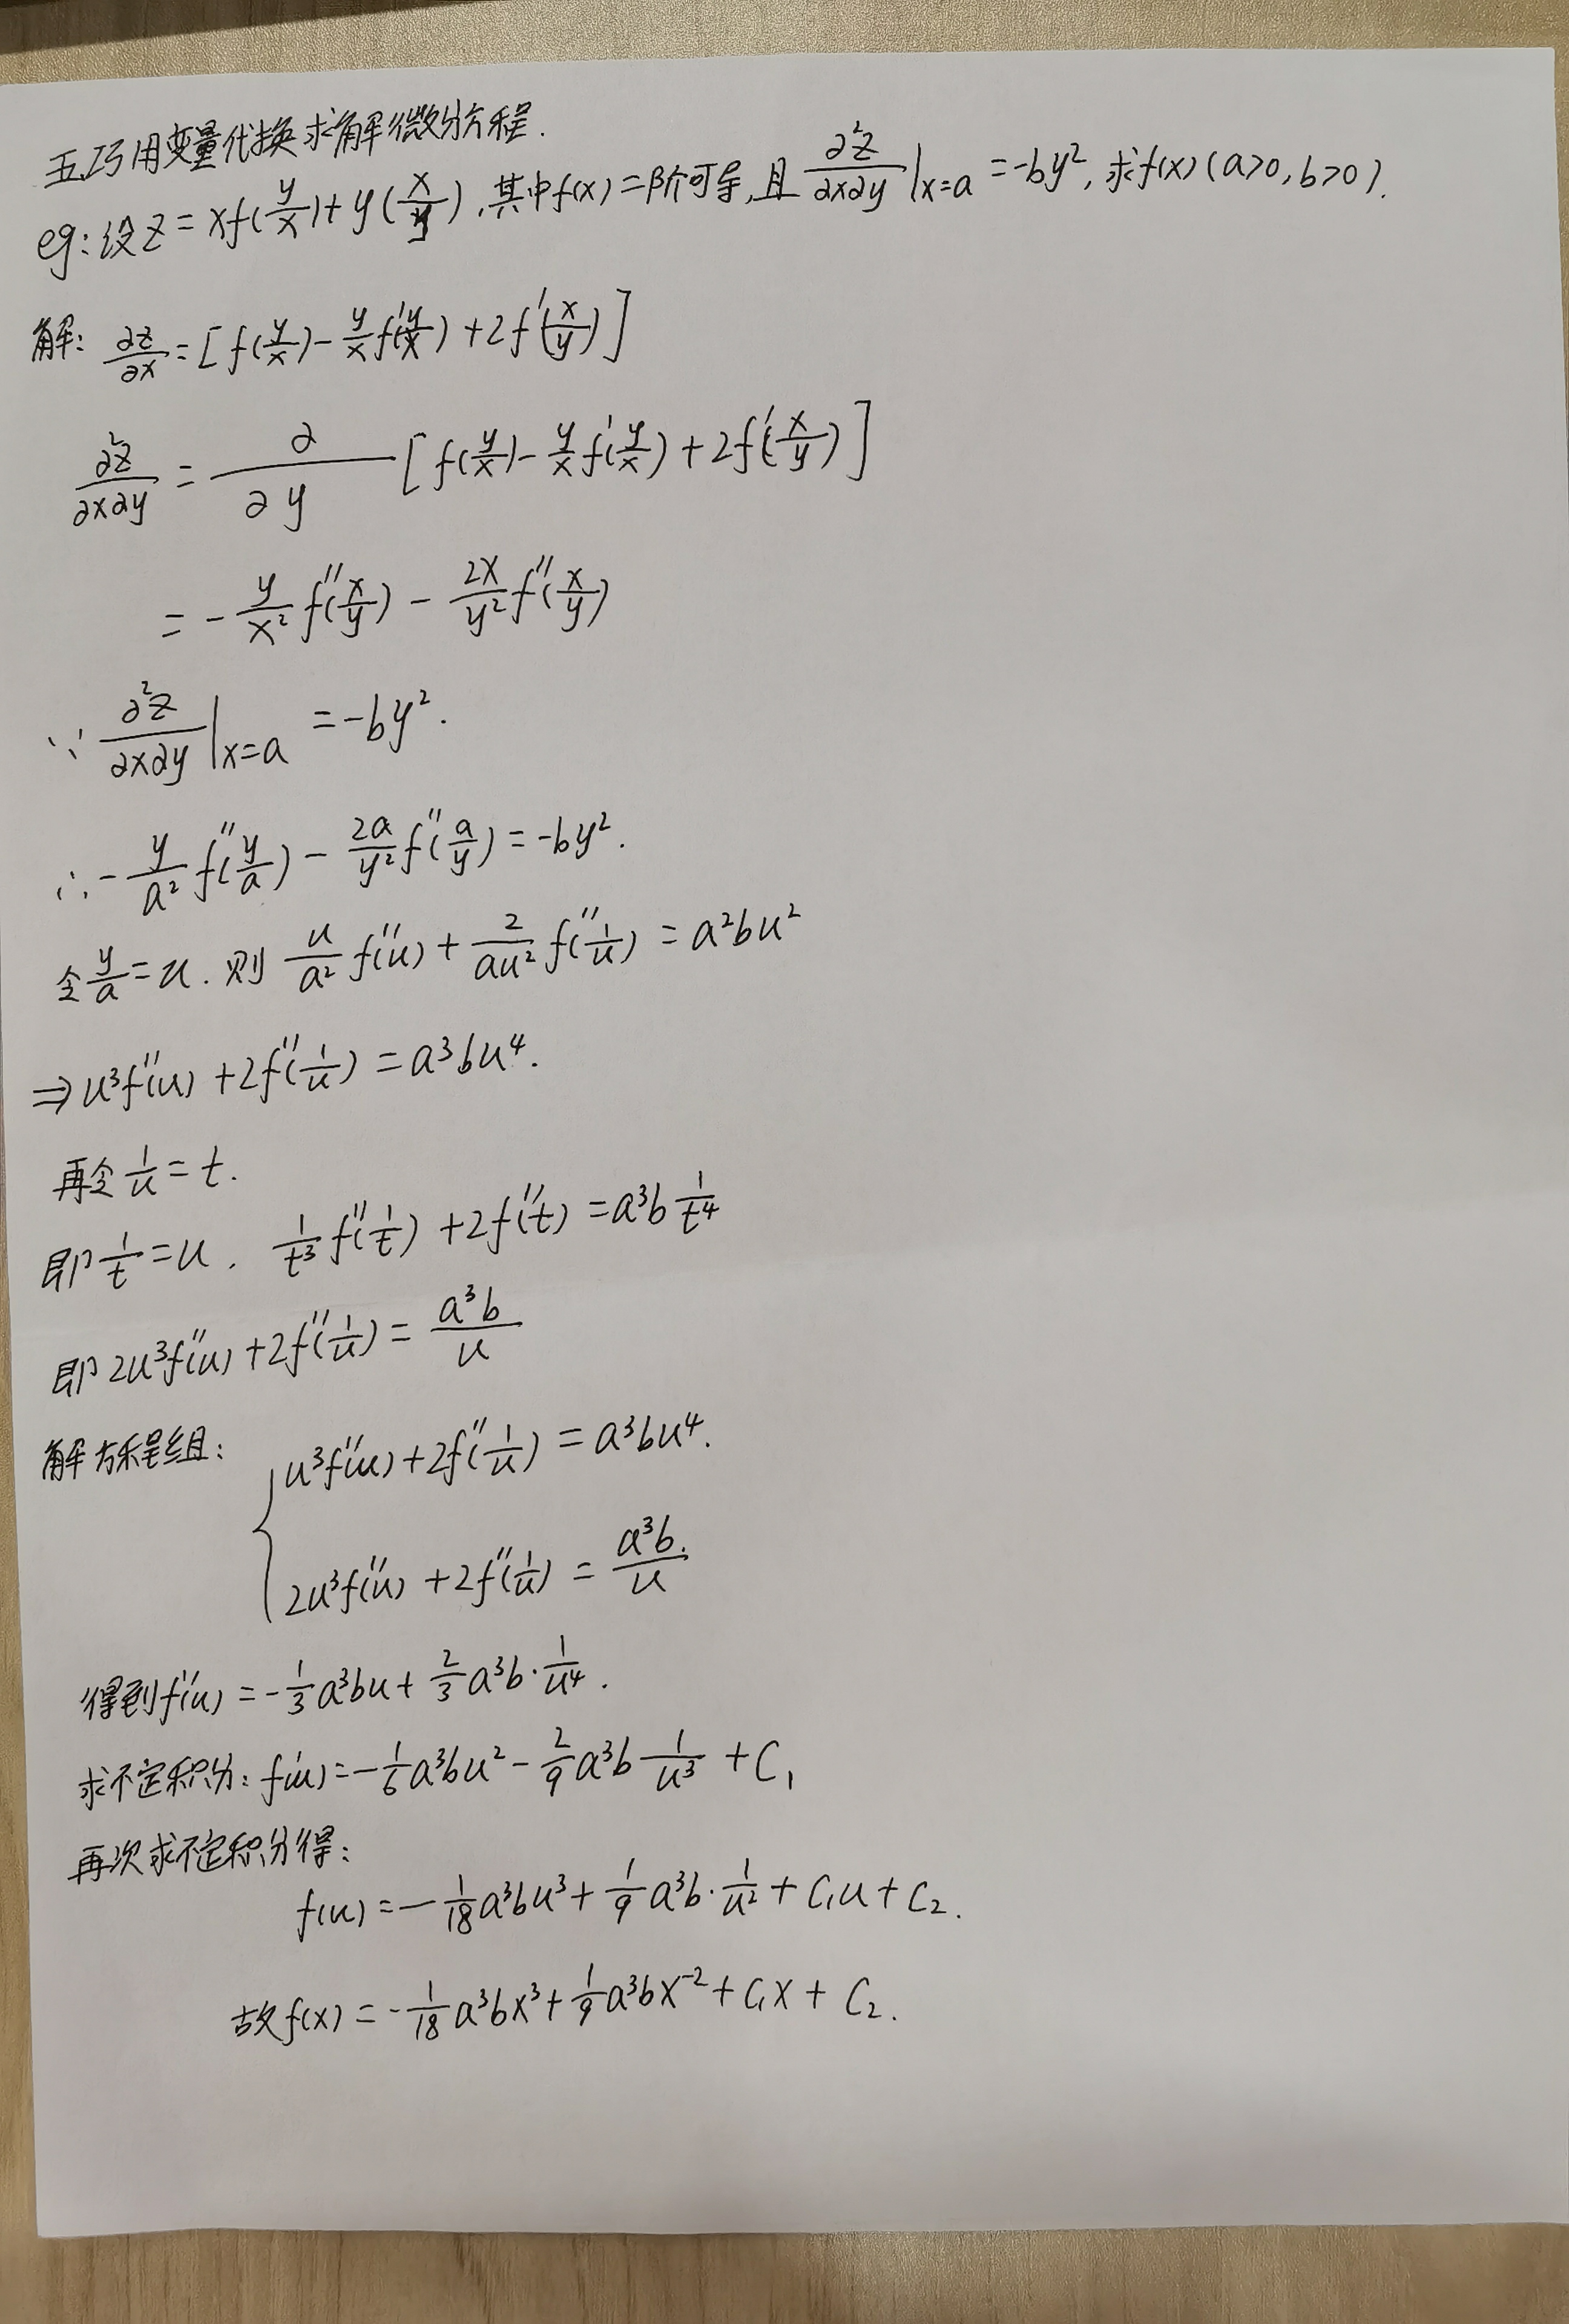 五.巧用变量代换求解微分方程.
eg:设z=xf(y/x)+y(x/y),其中f(x)二阶可导,且∂²z/∂x∂y|x=a=-by²,求f(x)(a>0,b>0).
解:∂z/∂x=[f(y/x)-y/x f'(y/x)+2f'(x/y)]
∂²z/∂x∂y=∂/∂y[f(y/x)-y/x f'(y/x)+2f'(x/y)]
=-y/x² f''(x/y)-2x/y² f''(x/y)
∵∂²z/∂x∂y|x=a=-by².
∴-y/a² f''(y/a)-2a/y² f''(a/y)=-by².
令y/a=u.则u/a² f''(u)+2/au² f''(1/u)=a²bu²
⇒u³f''(u)+2f''(1/u)=a³bu⁴.
再令1/u=t.
即1/t=u.1/t³ f''(1/t)+2f''(t)=a³b 1/t⁴
即2u³f''(u)+2f''(1/u)=a³b/u
解方程组:{u³f''(u)+2f''(1/u)=a³bu⁴.
2u³f''(u)+2f''(1/u)=a³b./u
得到f''(u)=-1/3a³bu+2/3a³b·1/u⁴.
求不定积分:f'(u)=-1/6a³bu²-2/9a³b 1/u³+C₁
再次求不定积分得:
f(u)=-1/18a³bu³+1/9a³b·1/u²+C₁u+C₂.
故f(x)=-1/18a³bx³+1/9a³bx⁻²+C₁x+C₂.